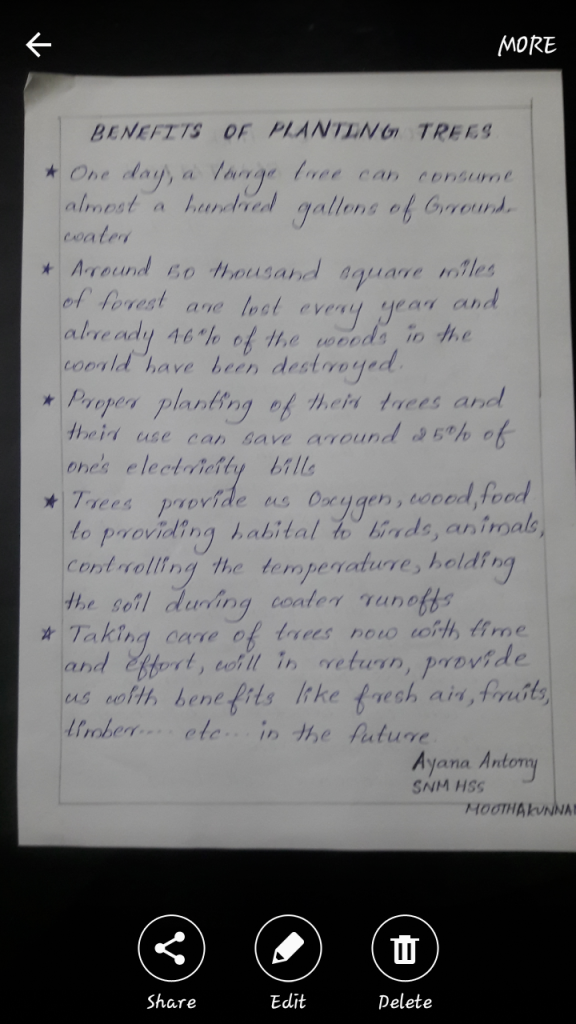 MORE
BENEFITS OF PLANTING TREES
★ One day, a large tree can consume
almost a hundred gallons of Ground-
water
★ Around 50 thousand square miles
of forest are lost every year and
already 46% of the woods in the
world have been destroyed.
★ Proper planting of their trees and
their use can save around 25% of
one's electricity bills
★ Trees provide us Oxygen, wood, food
to providing habital to birds, animals,
controlling the temperature, holding
the soil during water runoffs
★ Taking care of trees now with time
and effort, will in return, provide
us with benefits like fresh air, fruits,
timber.... etc... in the future.
Ayana Antony
SNM HSS
MOOTHAKUNNAM
Share Edit Delete